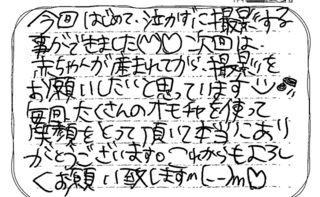 今回はじめて、泣かずに撮影する
事ができました(^^)♡ 次回は、
赤ちゃんが産まれてから撮影を
お願いしたいと思っています
毎回たくさんのオモチャを使って
笑顔をとって頂いて本当にあり
がとうございます。これからもよろし
くお願い致しますm(_ _)m♡